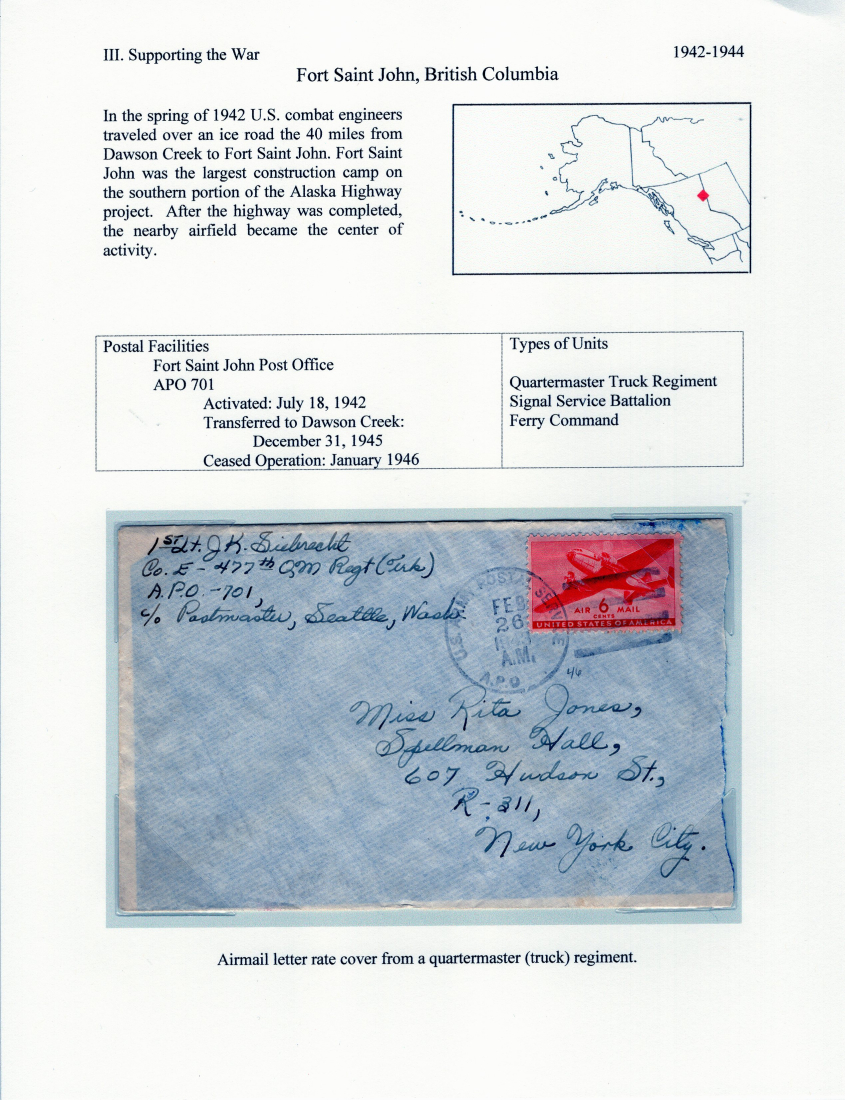 III. Supporting the War
1942-1944
Fort Saint John, British Columbia
In the spring of 1942 U.S. combat engineers
traveled over an ice road the 40 miles from
Dawson Creek to Fort Saint John. Fort Saint
John was the largest construction camp on
the southern portion of the Alaska Highway
project. After the highway was completed,
the nearby airfield became the center of
activity.
Postal Facilities
Fort Saint John Post Office
APO 701
Activated: July 18, 1942
Transferred to Dawson Creek:
December 31, 1945
Ceased Operation: January 1946
Types of Units
Quartermaster Truck Regiment
Signal Service Battalion
Ferry Command
1st Lt. J.K. Siebrecht
Co. E - 477th QM Regt (Trk)
A.P.O. -701,
c/o Postmaster, Seattle, Wash.
U.S. ARMY POSTAL SERVICE
FEB
26
A.M.
A.P.O
AIR 6 MAIL
CENTS
UNITED STATES OF AMERICA
46
Miss Rita Jones,
Spellman Hall,
607 Hudson St.,
R-311,
New York City.
Airmail letter rate cover from a quartermaster (truck) regiment.